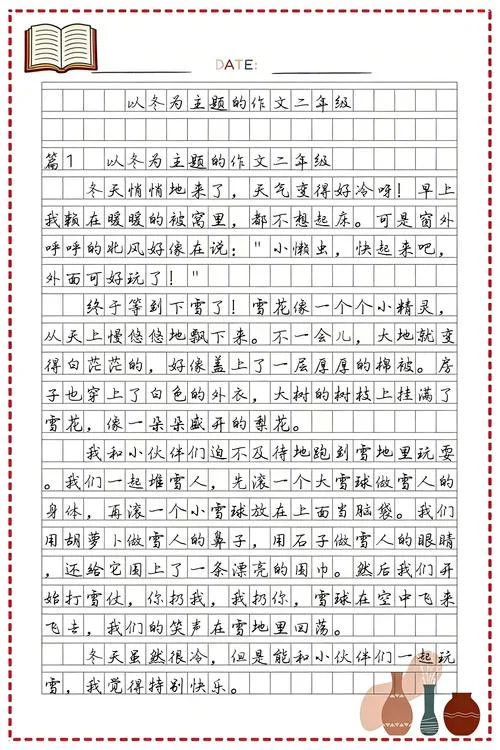 DATE:
以冬为主题的作文二年级
篇1 以冬为主题的作文二年级
冬天悄悄地来了，天气变得好冷呀！早上
我赖在暖暖的被窝里，都不想起床。可是窗外
呼呼的北风好像在说："小懒虫，快起来吧，
外面可好玩了！"
终于等到下雪了！雪花像一个个小精灵，
从天上慢悠悠地飘下来。不一会儿，大地就变
得白茫茫的，好像盖上了一层厚厚的棉被。房
子也穿上了白色的外衣，大树的树枝上挂满了
雪花，像一朵朵盛开的梨花。
我和小伙伴们迫不及待地跑到雪地里玩耍
。我们一起堆雪人，先滚一个大雪球做雪人的
身体，再滚一个小雪球放在上面当脑袋。我们
用胡萝卜做雪人的鼻子，用石子做雪人的眼睛
，还给它围上了一条漂亮的围巾。然后我们开
始打雪仗，你扔我，我扔你，雪球在空中飞来
飞去，我们的笑声在雪地里回荡。
冬天虽然很冷，但是能和小伙伴们一起玩
雪，我觉得特别快乐。